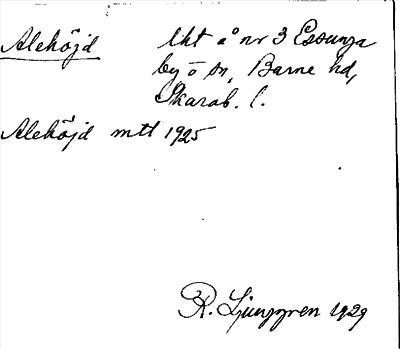 Alehöjd lht å nr 3 Essunga
by o sn, Barne hd,
Skarab. l.
Alehöjd mtl 1925
R. Ljunggren 1929